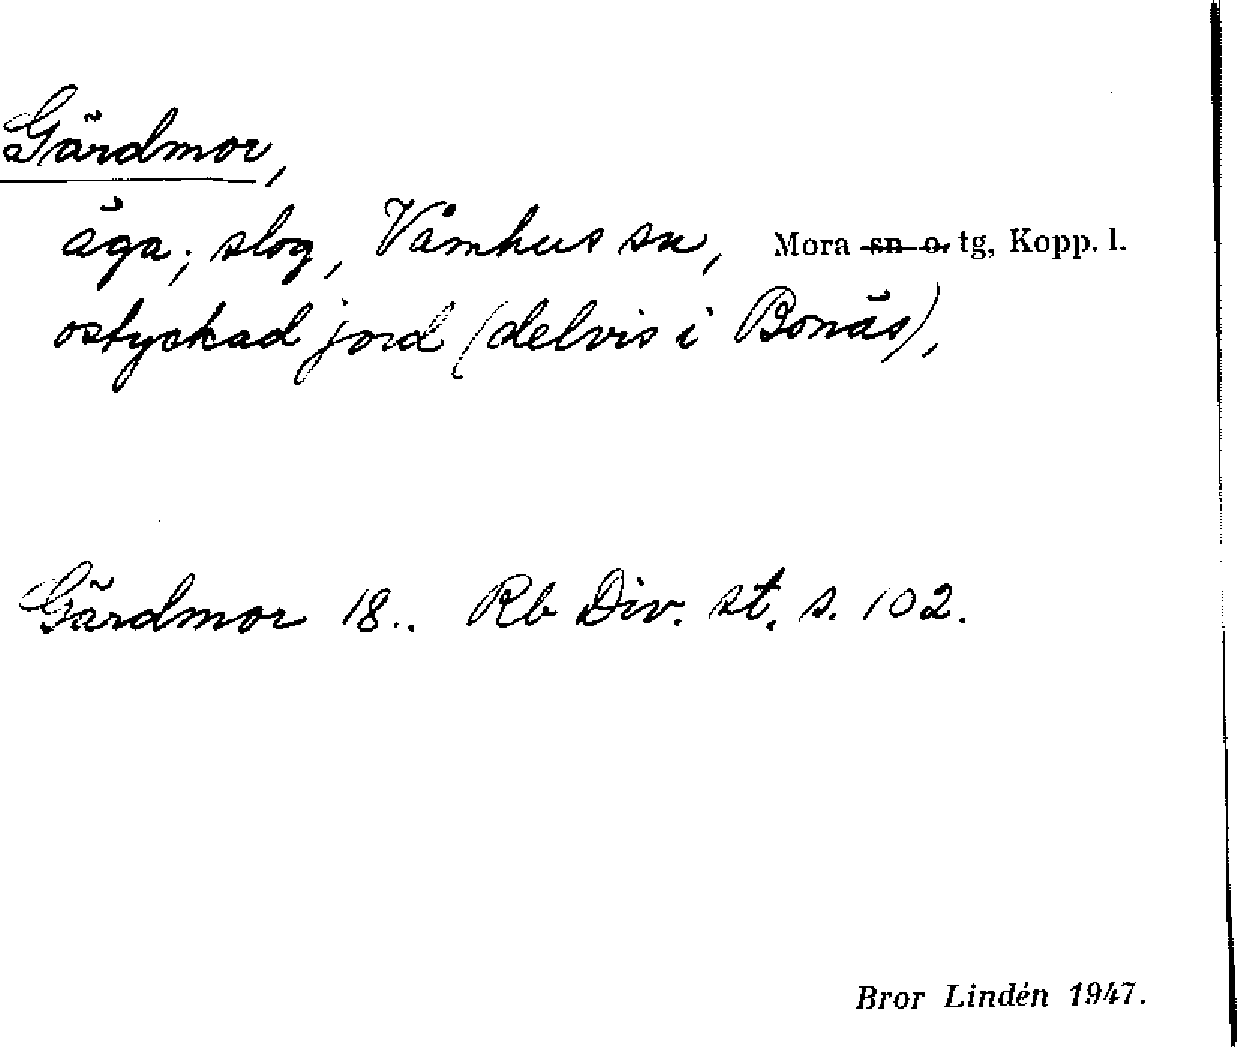 Gärdmor,
äga; slog, Våmhus sn, Mora sn o. tg, Kopp. l.
ostyckad jord (delvis i Bonäs),
Gärdmor 18.. Rb Div. st. s. 102.
Bror Lindén 1947.